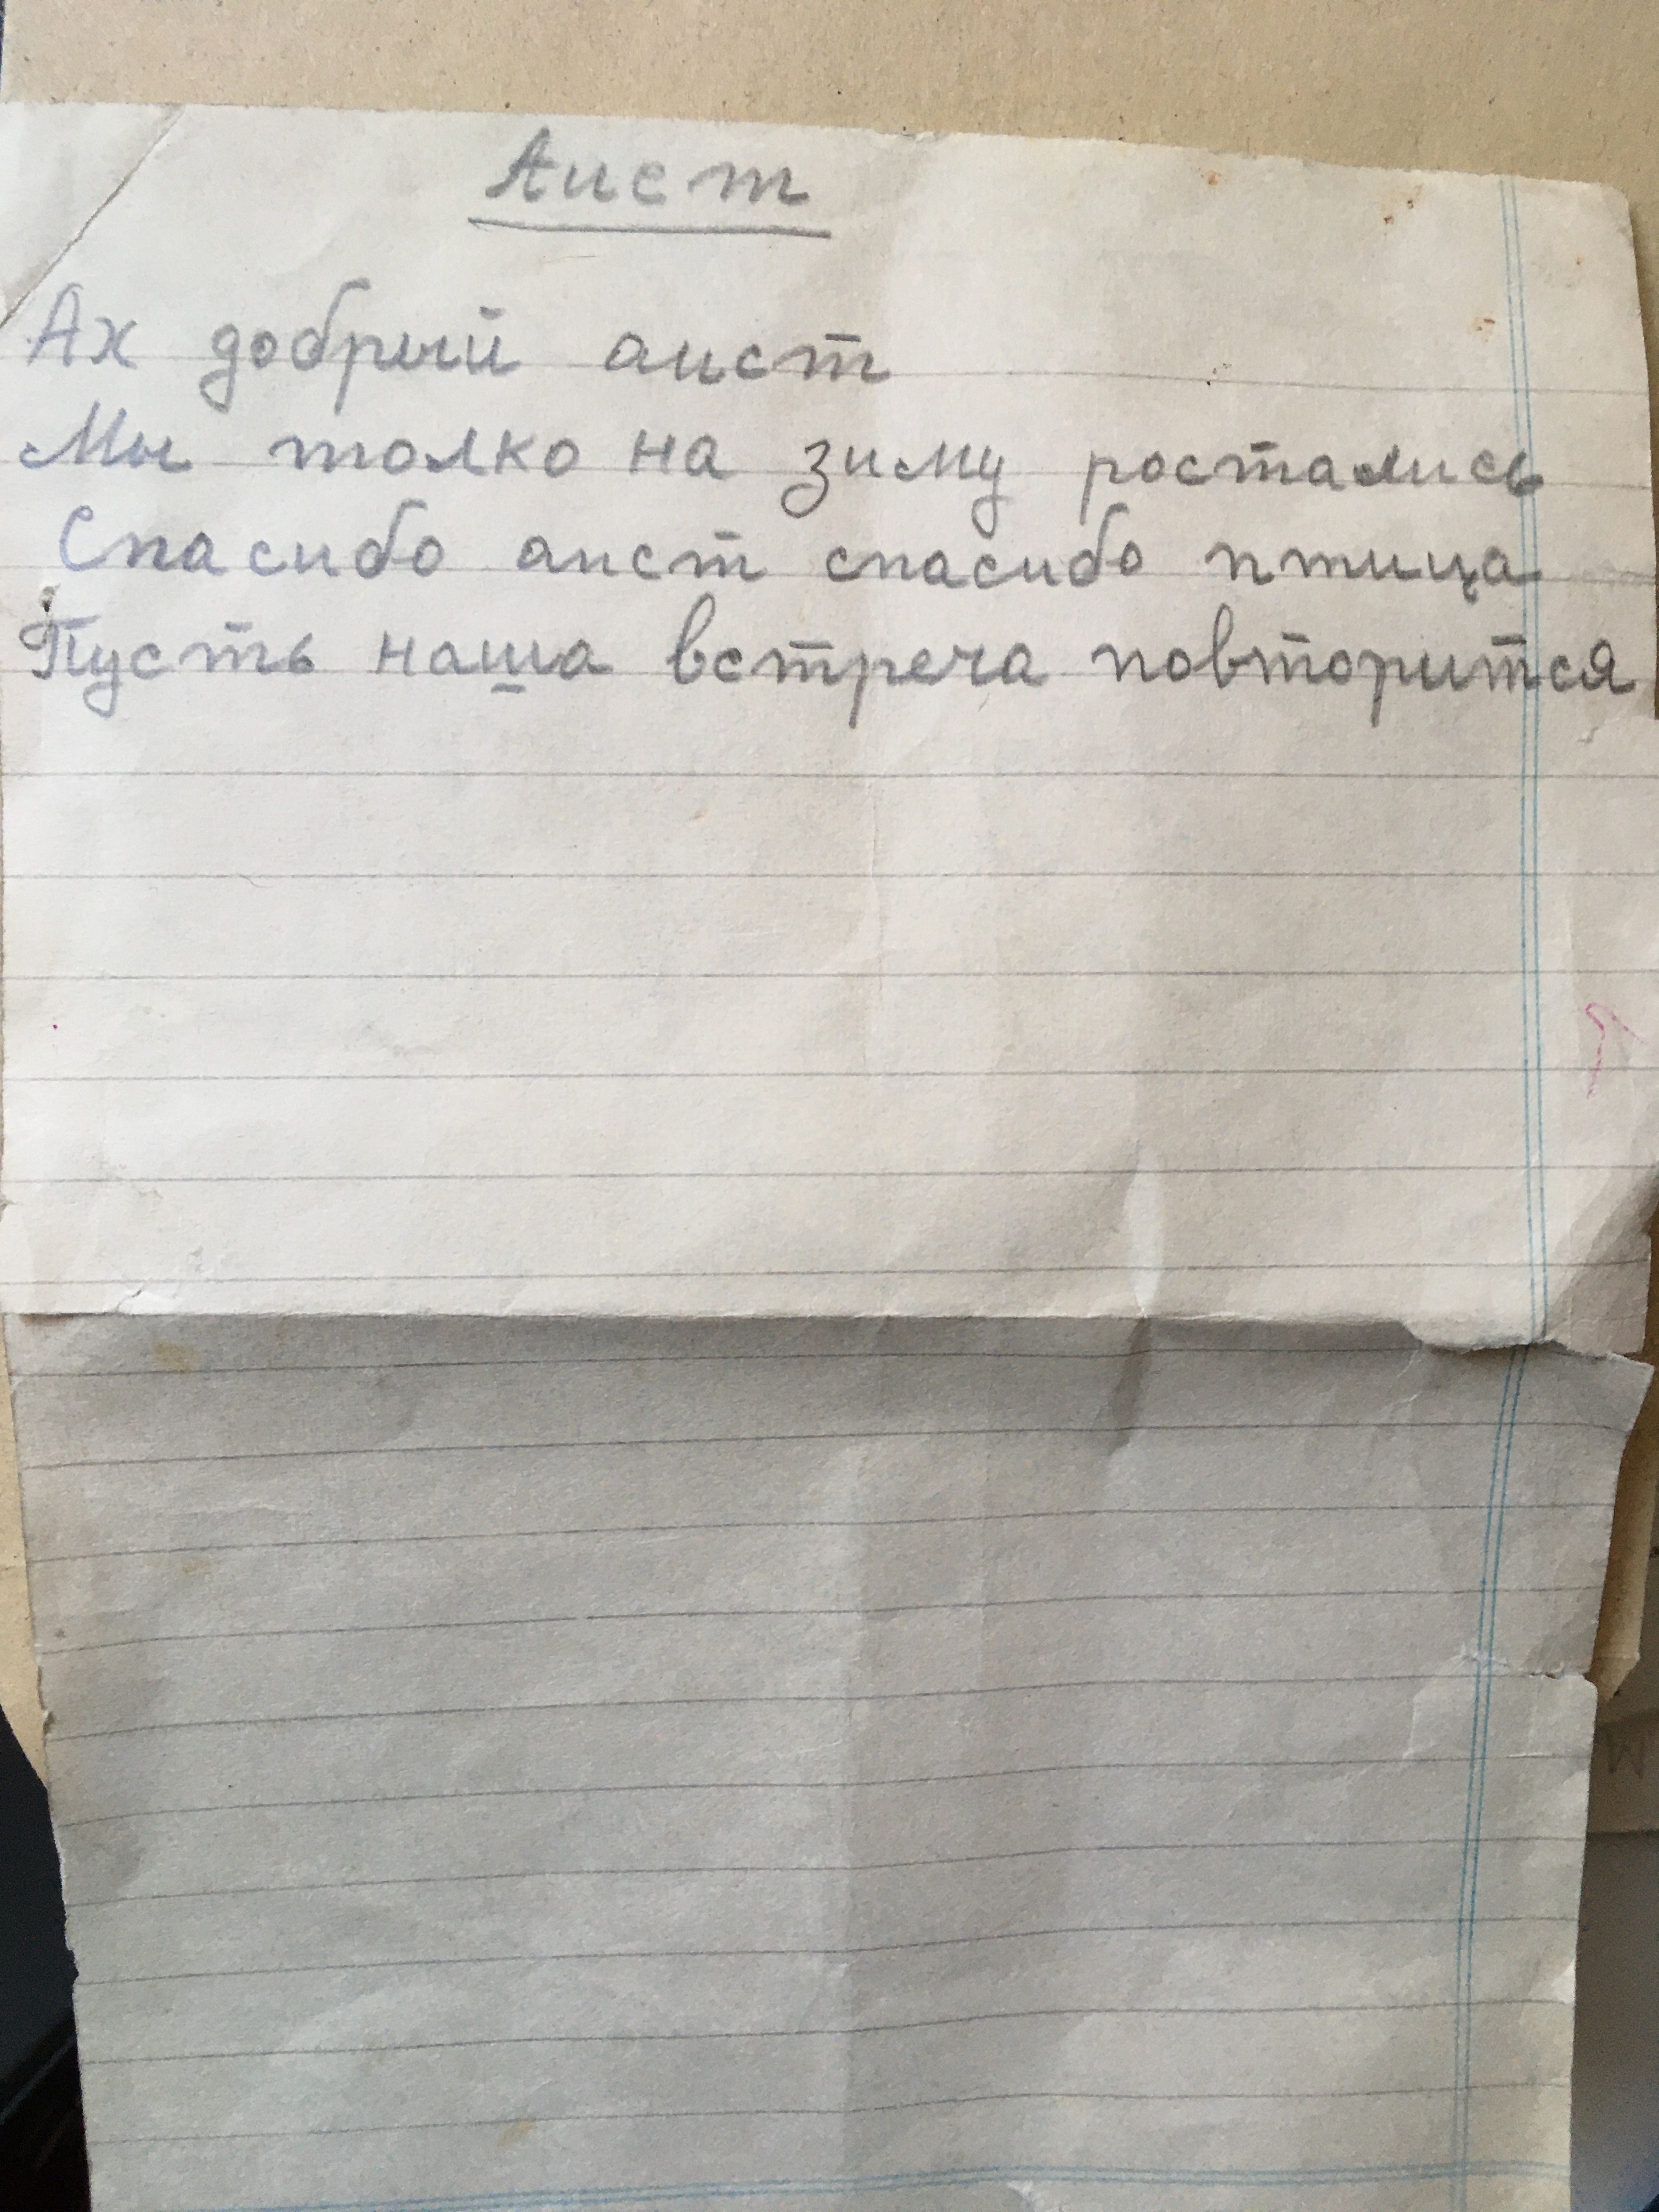 Аист
Ах добрый аист
Мы толко на зиму ростались
Спасибо аист спасибо птица
Пусть наша встреча повторится